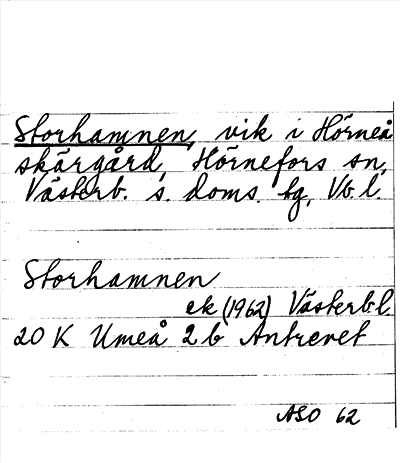 Storhamnen, vik i Hörneå
skärgård, Hörnefors sn,
Västerb. s. doms. tg, Vb l.
Storhamnen
ek (1962) Västerb l
20 K Umeå 2 b Antrevet
ASO 62